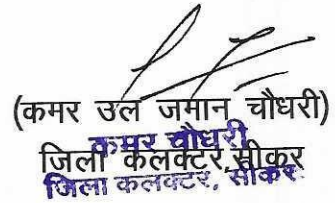 (कमर उल जमान चौधरी)
कमर चौधरी
जिला कलक्टर,सीकर
जिला कलक्टर, सीकर